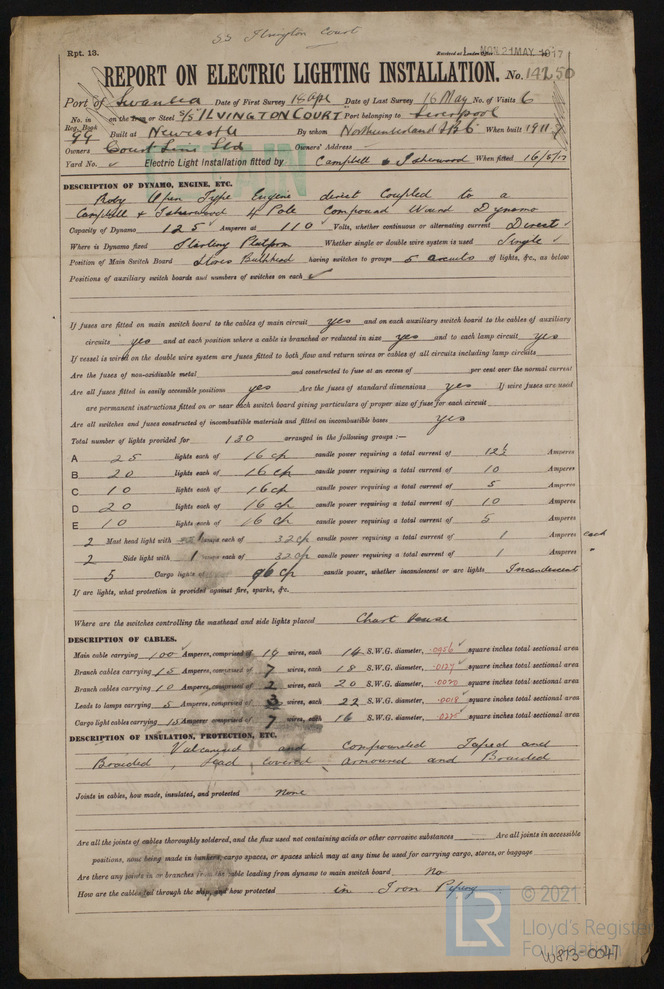 SS Ilvington Court
Rpt. 13.
Received at London Office MON 21 MAY 1917
REPORT ON ELECTRIC LIGHTING INSTALLATION. No. 14250
Port of Swansea Date of First Survey 18 Apl Date of Last Survey 16 May No. of Visits 6
No. in Reg. Book 99 on the Iron or Steel S/S ILVINGTON COURT Port belonging to Liverpool
Built at Newcastle By whom Northumberland SB Co When built 1911
Owners Court Line Ltd Owners' Address
Yard No. Electric Light Installation fitted by Campbell & Isherwood When fitted 16/5/17
DESCRIPTION OF DYNAMO, ENGINE, ETC.
Roby Open Type Engine direct Coupled to a
Campbell & Isherwood 4 Pole Compound Wound Dynamo
Capacity of Dynamo 125 Amperes at 110 Volts, whether continuous or alternating current Direct
Where is Dynamo fixed Starting Platform Whether single or double wire system is used Single
Position of Main Switch Board Stores Bulkhead having switches to groups 5 circuits of lights, &c., as below
Positions of auxiliary switch boards and numbers of switches on each
If fuses are fitted on main switch board to the cables of main circuit yes and on each auxiliary switch board to the cables of auxiliary
circuits yes and at each position where a cable is branched or reduced in size yes and to each lamp circuit yes
If vessel is wired on the double wire system are fuses fitted to both flow and return wires or cables of all circuits including lamp circuits
Are the fuses of non-oxidizable metal and constructed to fuse at an excess of per cent over the normal current
Are all fuses fitted in easily accessible positions yes Are the fuses of standard dimensions yes If wire fuses are used
are permanent instructions fitted on or near each switch board giving particulars of proper size of fuse for each circuit
Are all switches and fuses constructed of incombustible materials and fitted on incombustible bases yes
Total number of lights provided for 130 arranged in the following groups :—
A 25 lights each of 16 cp candle power requiring a total current of 12½ Amperes
B 20 lights each of 16 cp candle power requiring a total current of 10 Amperes
C 10 lights each of 16 cp candle power requiring a total current of 5 Amperes
D 20 lights each of 16 cp candle power requiring a total current of 10 Amperes
E 10 lights each of 16 cp candle power requiring a total current of 5 Amperes
2 Mast head light with 1 lamps each of 32 cp candle power requiring a total current of 1 Amperes each
2 Side light with 1 lamps each of 32 cp candle power requiring a total current of 1 Amperes "
5 Cargo lights of 96 cp candle power, whether incandescent or arc lights Incandescent
If arc lights, what protection is provided against fire, sparks, &c.
Where are the switches controlling the masthead and side lights placed Chart House
DESCRIPTION OF CABLES.
Main cable carrying 100 Amperes, comprised of 19 wires, each 16 S.W.G. diameter, .0956 square inches total sectional area
Branch cables carrying 15 Amperes, comprised of 7 wires, each 18 S.W.G. diameter, .0127 square inches total sectional area
Branch cables carrying 10 Amperes, comprised of 2 wires, each 20 S.W.G. diameter, .0020 square inches total sectional area
Leads to lamps carrying 5 Amperes, comprised of 3 wires, each 22 S.W.G. diameter, .0018 square inches total sectional area
Cargo light cables carrying 15 Amperes, comprised of 7 wires, each 16 S.W.G. diameter, .0225 square inches total sectional area
DESCRIPTION OF INSULATION, PROTECTION, ETC.
Vulcanized and Compounded Taped and
Braided, Lead covered armoured and Braided
Joints in cables, how made, insulated, and protected None
Are all the joints of cables thoroughly soldered, and the flux used not containing acids or other corrosive substances Are all joints in accessible
positions, none being made in bunkers, cargo spaces, or spaces which may at any time be used for carrying cargo, stores, or baggage
Are there any joints in or branches from the cable leading from dynamo to main switch board No
How are the cables led through the ship, and how protected in Iron Piping
© 2021
LR Lloyd's Register
Foundation
W873-0047